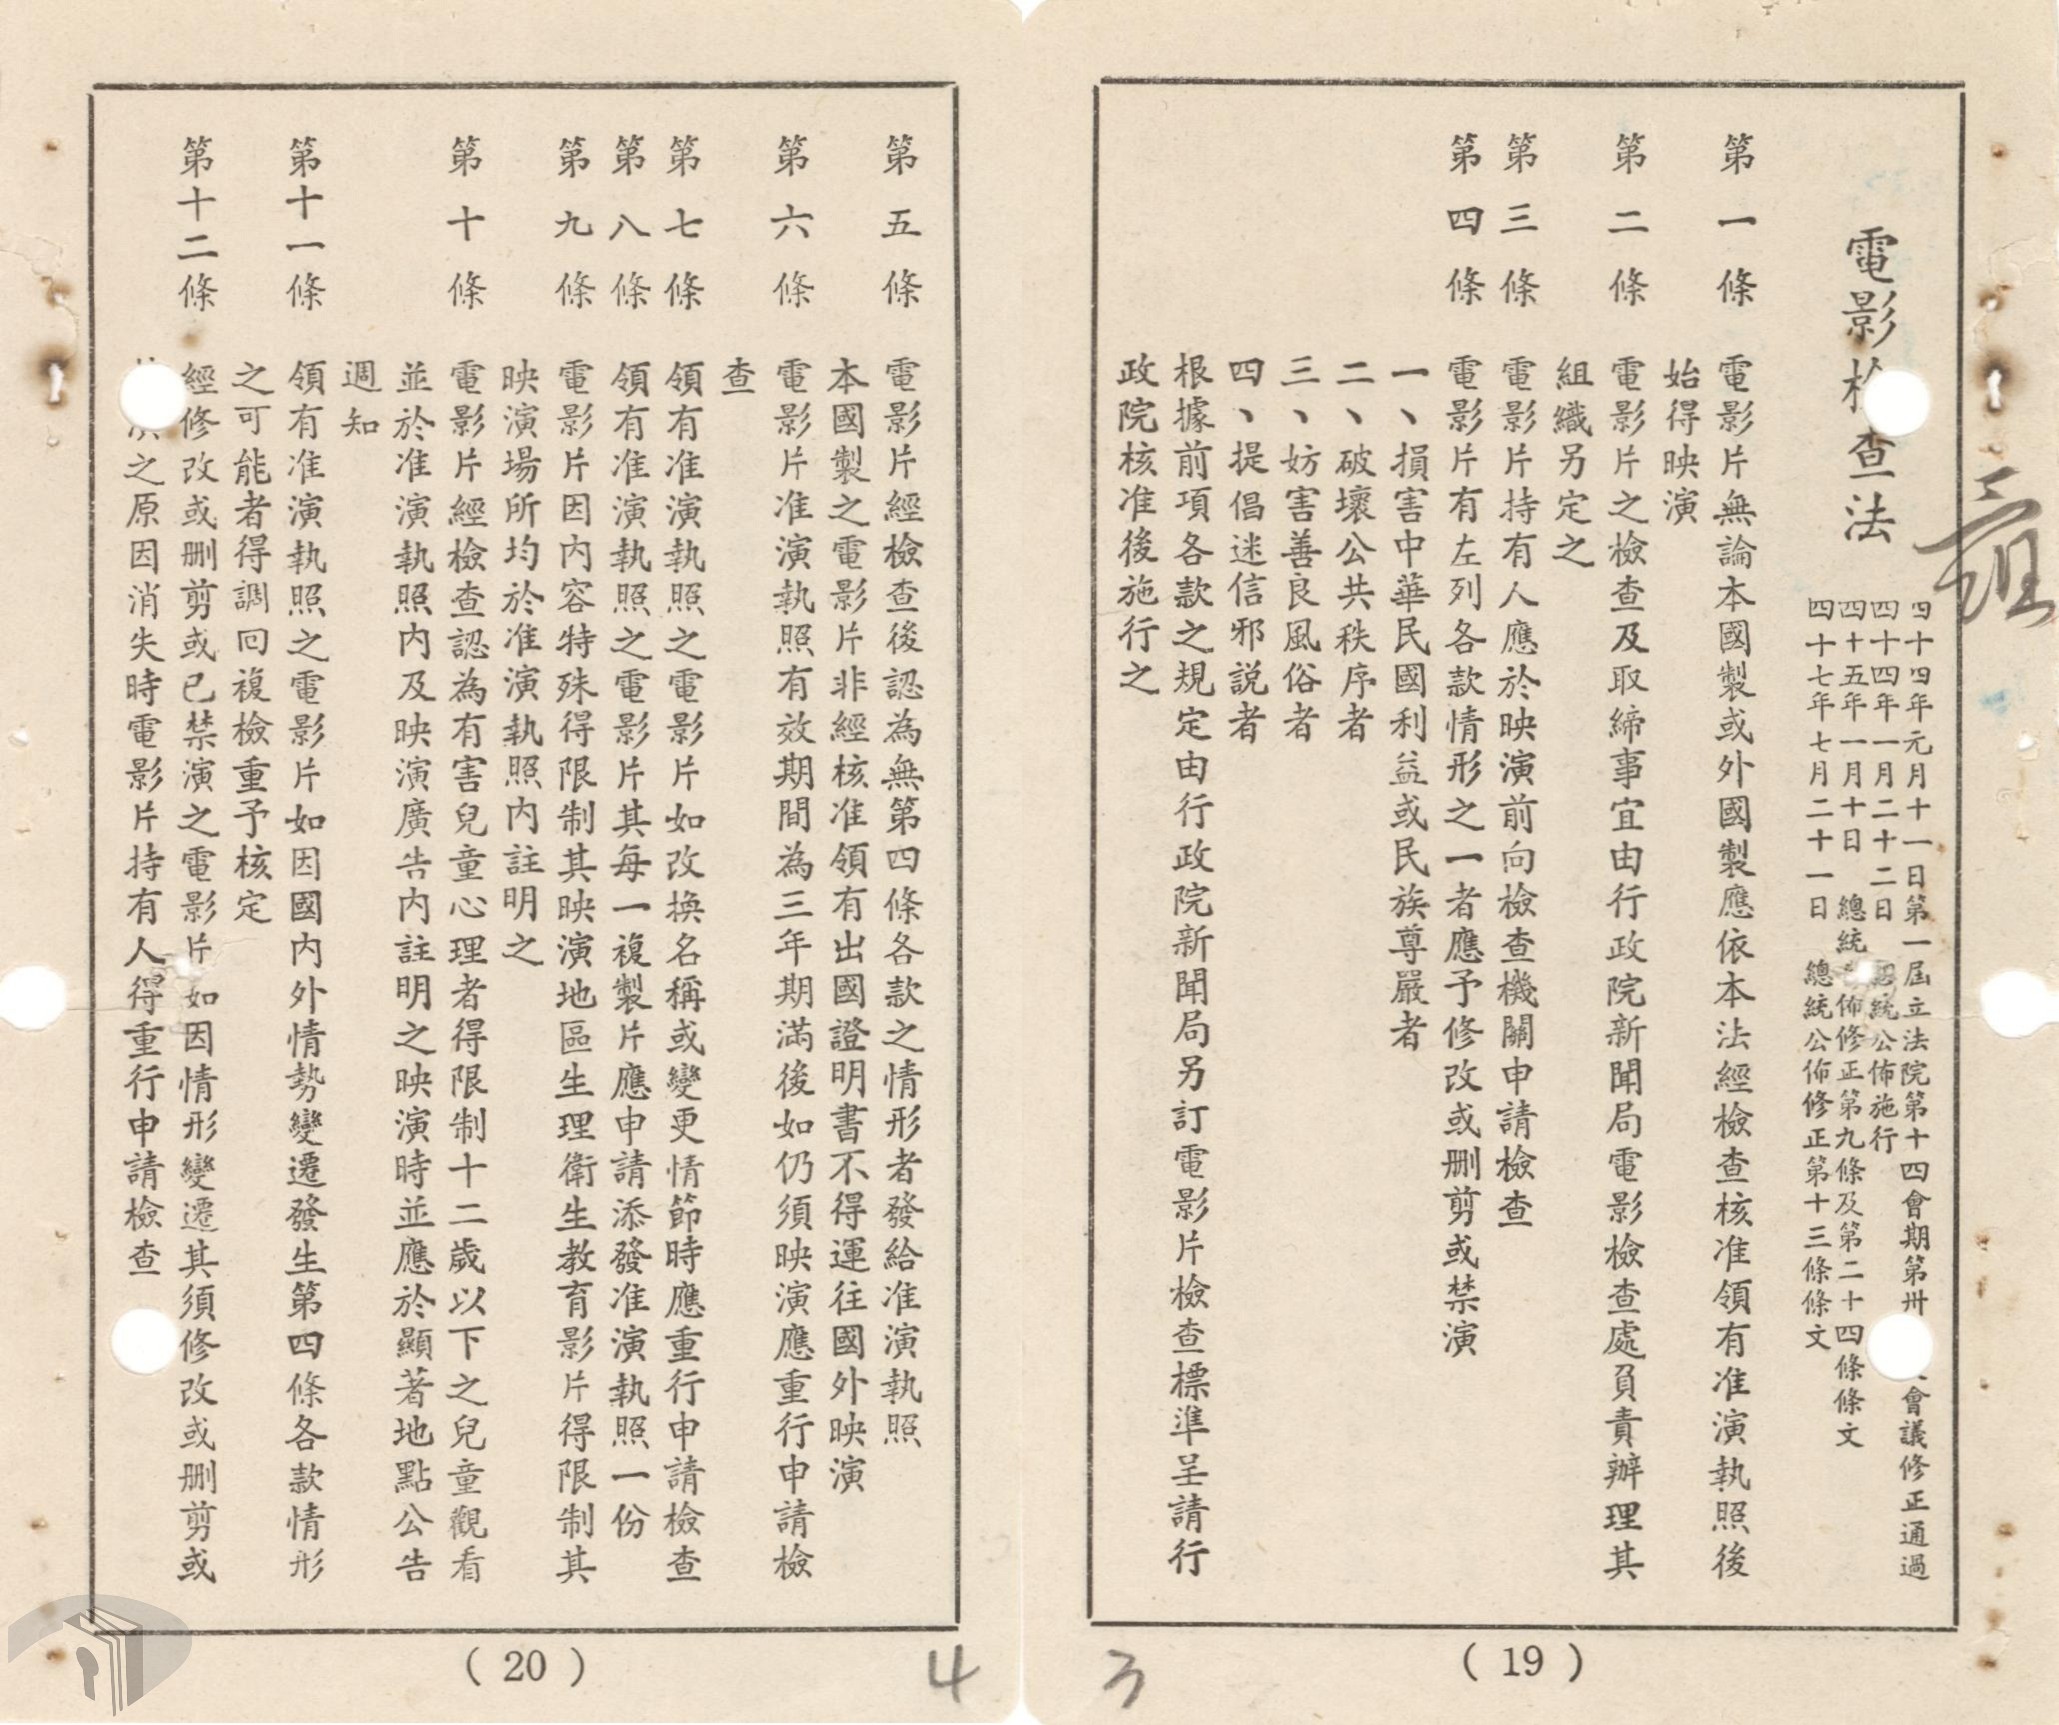 電影檢查法
四十四年元月十一日第一屆立法院第十四會期第卅會議修正通過
四十四年一月二十二日 總統公佈施行
四十五年一月十日 總統公佈修正第九條及第二十四條條文
四十七年七月二十一日 總統公佈修正第十三條條文
第一條 電影片無論本國製或外國製應依本法經檢查核准領有准演執照後
始得映演
第二條 電影片之檢查及取締事宜由行政院新聞局電影檢查處負責辦理其
組織另定之
第三條 電影片持有人應於映演前向檢查機關申請檢查
第四條 電影片有左列各款情形之一者應予修改或刪剪或禁演
一、損害中華民國利益或民族尊嚴者
二、破壞公共秩序者
三、妨害善良風俗者
四、提倡迷信邪說者
根據前項各款之規定由行政院新聞局另訂電影片檢查標準呈請行
政院核准後施行之
(19)
3
第五條 電影片經檢查後認為無第四條各款之情形者發給准演執照
本國製之電影片非經核准領有出國證明書不得運往國外映演
第六條 電影片准演執照有效期間為三年期滿後如仍須映演應重行申請檢
查
第七條 領有准演執照之電影片如改換名稱或變更情節時應重行申請檢查
第八條 領有准演執照之電影片其每一複製片應申請添發准演執照一份
第九條 電影片因內容特殊得限制其映演地區生理衛生教育影片得限制其
映演場所均於准演執照內註明之
第十條 電影片經檢查認為有害兒童心理者得限制十二歲以下之兒童觀看
並於准演執照內及映演廣告內註明之映演時並應於顯著地點公告
週知
第十一條 領有准演執照之電影片如因國內外情勢變遷發生第四條各款情形
之可能者得調回複檢重予核定
第十二條 經修改或刪剪或已禁演之電影片如因情形變遷其須修改或刪剪或
演之原因消失時電影片持有人得重行申請檢查
(20)
4